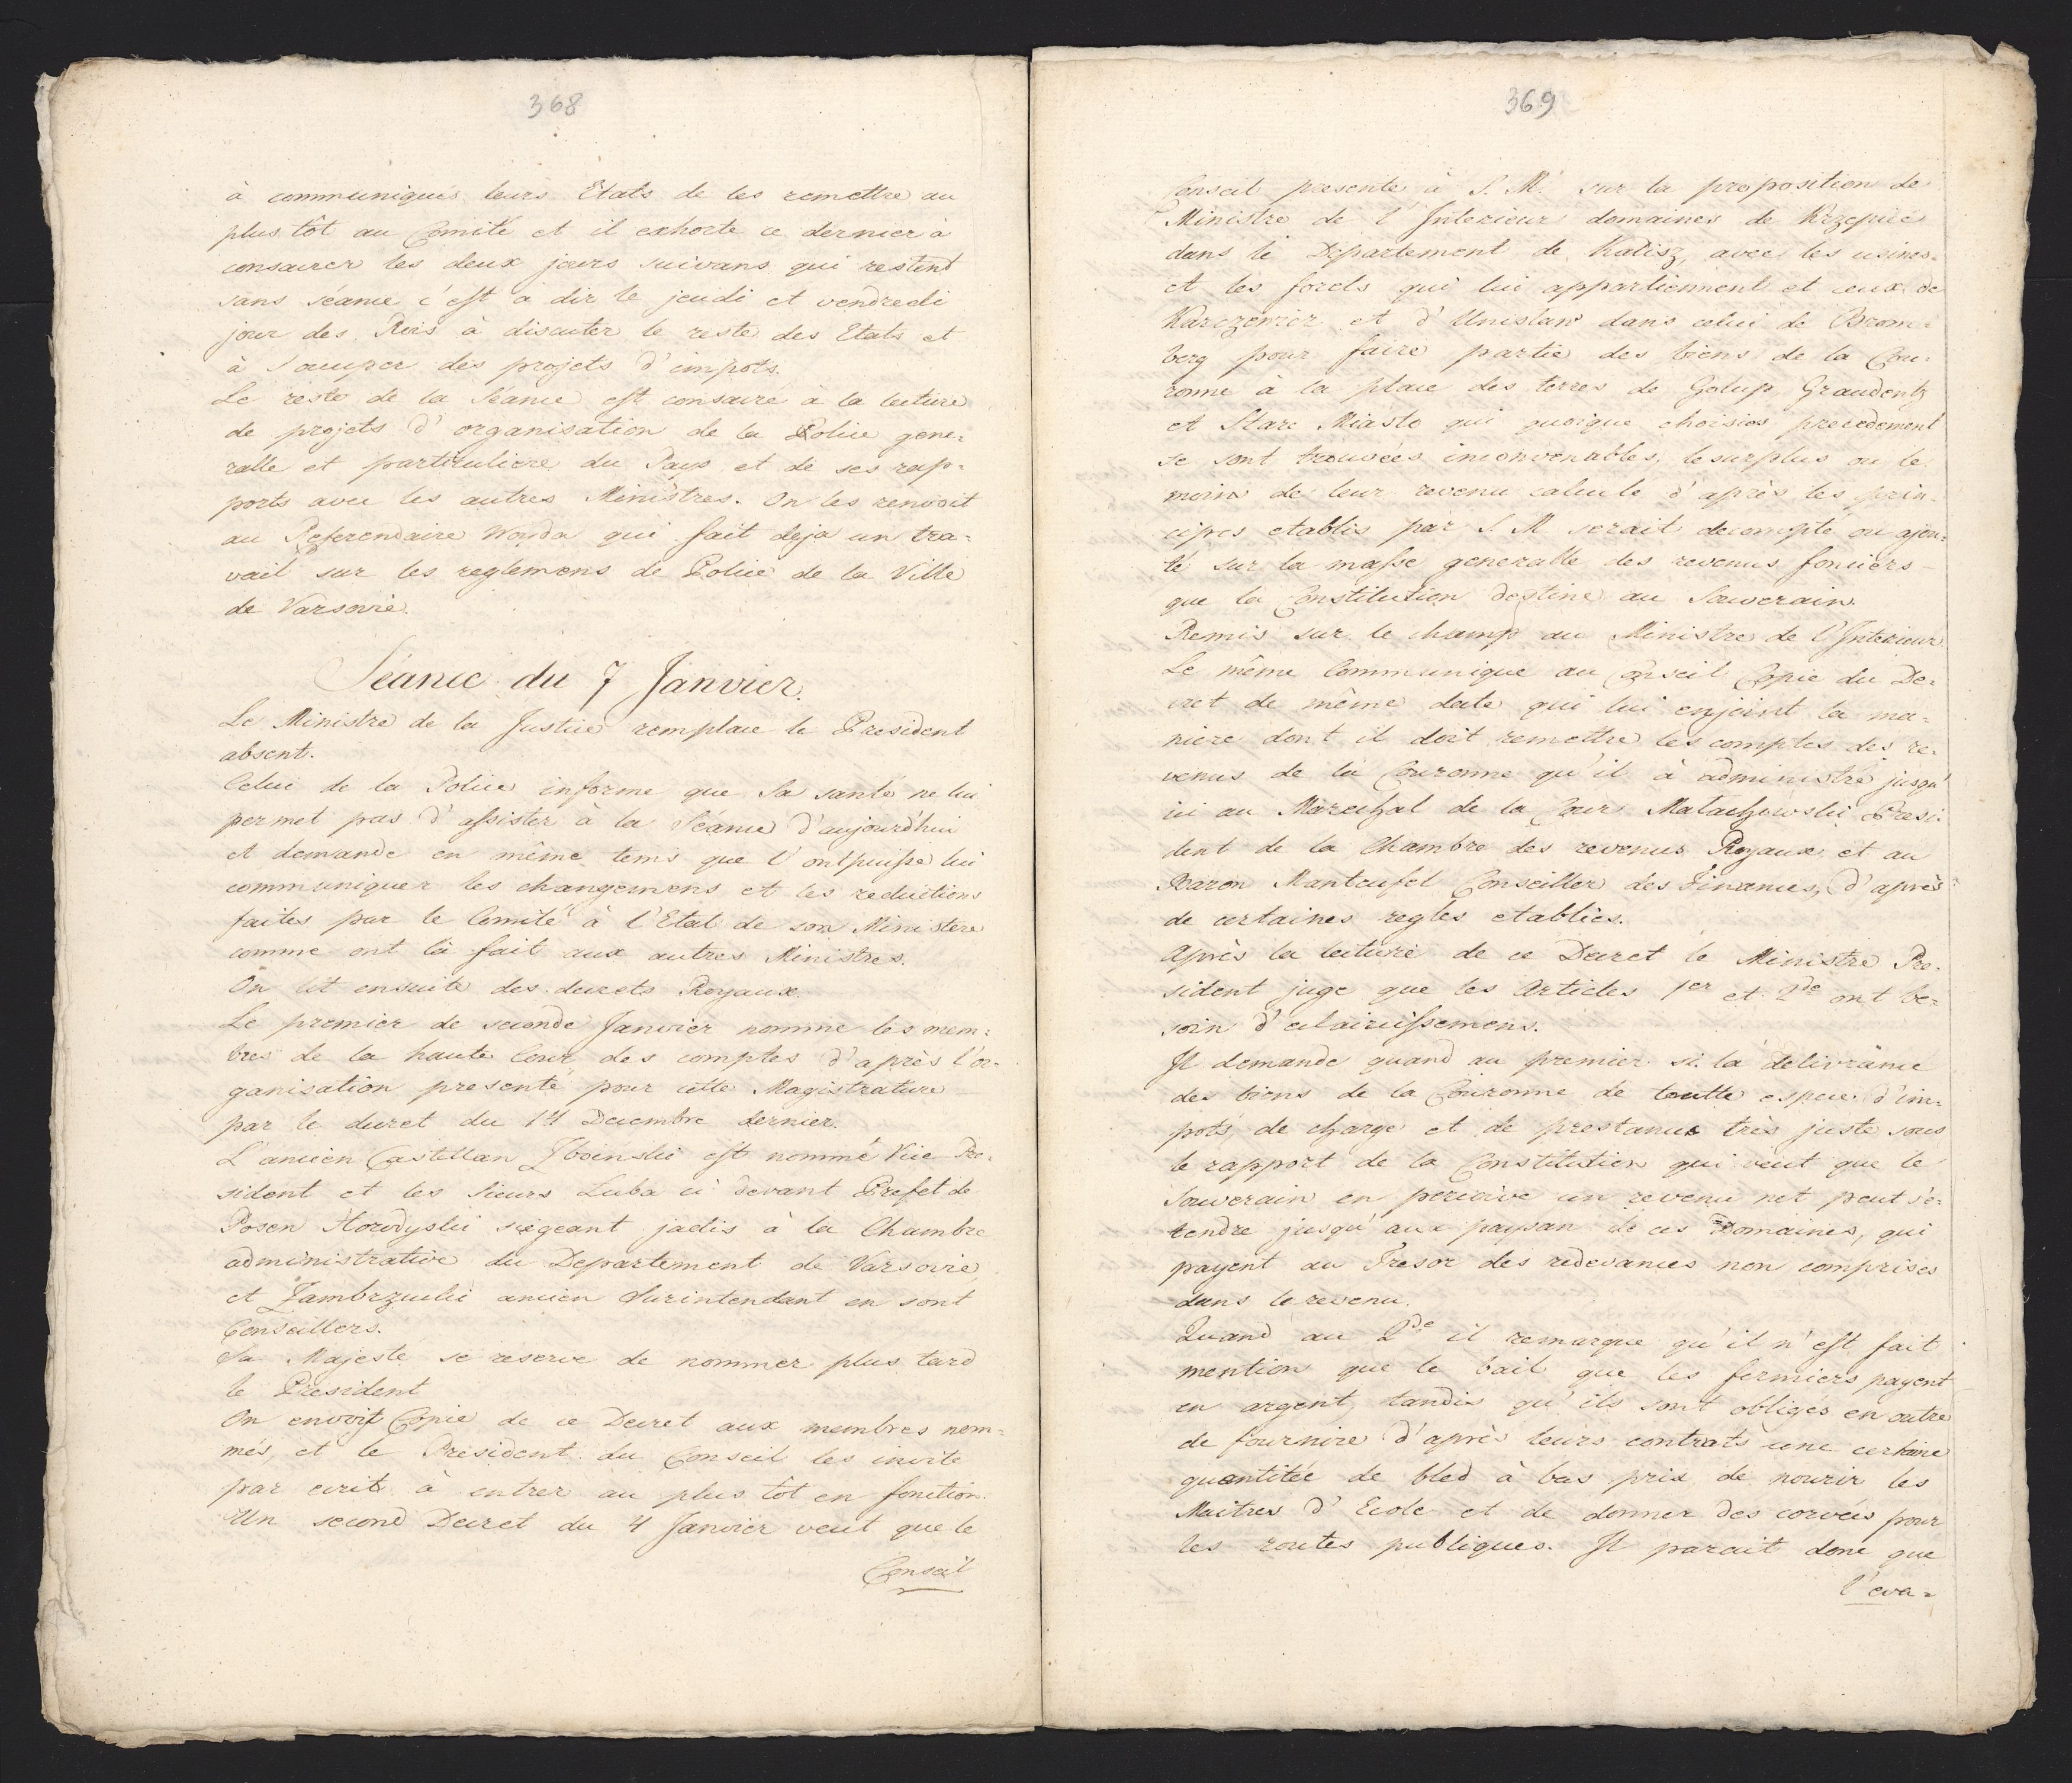 368
à communiqués leurs Etats de les remettre au
plus tôt au Comité et il exhorte ce dernier à
consacrer les deux jours suivans qui restent
sans séance c'est à dir le jeudi et vendredi
jour des Rois à discuter le reste des Etats et
à s'occuper des projets d'impots.
Le reste de la Séance est consacré à la lecture
de projets d'organisation de la Police gene=
ralle et particuliere du Pays et de ses rap=
ports avec les autres Ministres. On les renvoit
au Referendaire Woyda qui fait deja un tra=
vail sur les reglemens de Police de la Ville
de Varsovie.
Séance du 7 Janvier.
Le Ministre de la Justice remplace le President
absent.
Celui de la Police informe que Sa santé ne lui
permet pas d'assister à la Séance d'aujourd'hui
et demande en même tems que l'ont puisse lui
communiquer les changemens et les reductions
faites par le Comité à l'Etat de son Ministere
comme ont là fait aux autres Ministres.
On lit ensuite des decrets Royaux.
Le premier de seconde Janvier nomme les mem=
bres de la haute Cour des comptes d'après l'or=
ganisation presenté pour cette Magistrature
par le decret du 14 Decembre dernier.
L'ancien Castellan Zboinski est nommé Vice Pre=
sident et les Sieurs Luba ci devant Prefet de
Posen Howdyski siegeant jadis à la Chambre
administrative du Departement de Varsovie
et Zambrzucki ancien Surintendant en sont
Conseillers.
Sa Majeste se reserve de nommer plus tard
le President
On envoit Copie de ce Decret aux membres nom=
més, et le President du Conseil les invite
par ecrit à entrer au plus tôt en fonction.
Un second Decret du 4 Janvier veut que le
Conseil
369
Conseil presente à S. M. sur la proposition de
Ministre de l'Interieur domaines de Krzepice
dans le Departement de Kalisz, avec les usines
et les forets qui lui appartiennent et ceux de
Karczemicz et d'Unislaw dans celui de Brom=
berg pour faire partie des biens de la Cou=
ronne à la place des terres de Golup, Graudentz
et Stare Miasto qui quoique choisies precedement
se sont trouvées inconvenables, le surplus ou le
moins de leur revenu calculé d'après les prin=
cipes etablis par S. M serait decompté ou ajou=
té sur la masse generalle des revenus fonciers
que la Constitution destine au Souverain.
Remis sur le champ au Ministre de l'Interieur
Le même Communique au Conseil Copie du De=
cret de même date qui lui enjoint la ma=
niere dont il doit remettre les comptes des re=
venus de la Couronne qu'il à administré jusqu'
ici au Marechal de la Cour Malachowski Presi=
dent de la Chambre des revenus Royaux et au
Baron Manteufel Conseiller des Finances, d'après
de certaines regles etablies.
Après la lecture de ce Decret le Ministre Pre=
sident juge que les Articles 1er et 2de ont be=
soin d'eclaircissemens.
Il demande quand au premier si la delivrance
des biens de la Couronne de toutte espece d'im=
pots, de charge et de prestance très juste sous
le rapport de la Constitution qui veut que le
Souverain en percoive un revenu net peut s'e=
tendre jusqu'aux paysan de ces Domaines, qui
payent au Tresor des redevances non comprises
dans le revenu.
Quand au 2de il remarque qu'il n'est fait
mention que le bail que les fermiers payent
en argent, tandis qu'ils sont obligés en outre
de fournire d'après leurs contrats une certaine
quantitée de bled à bas prix de nourir les
Maitres d'Ecole et de donner des corvées pour
les routes publiques. Il parait donc que
l'eva=